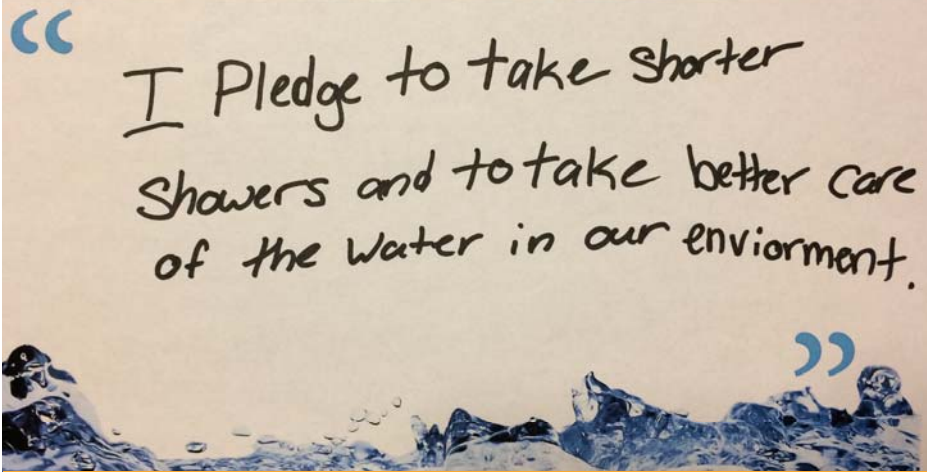 “
I Pledge to take shorter
showers and to take better care
of the water in our enviorment.
”